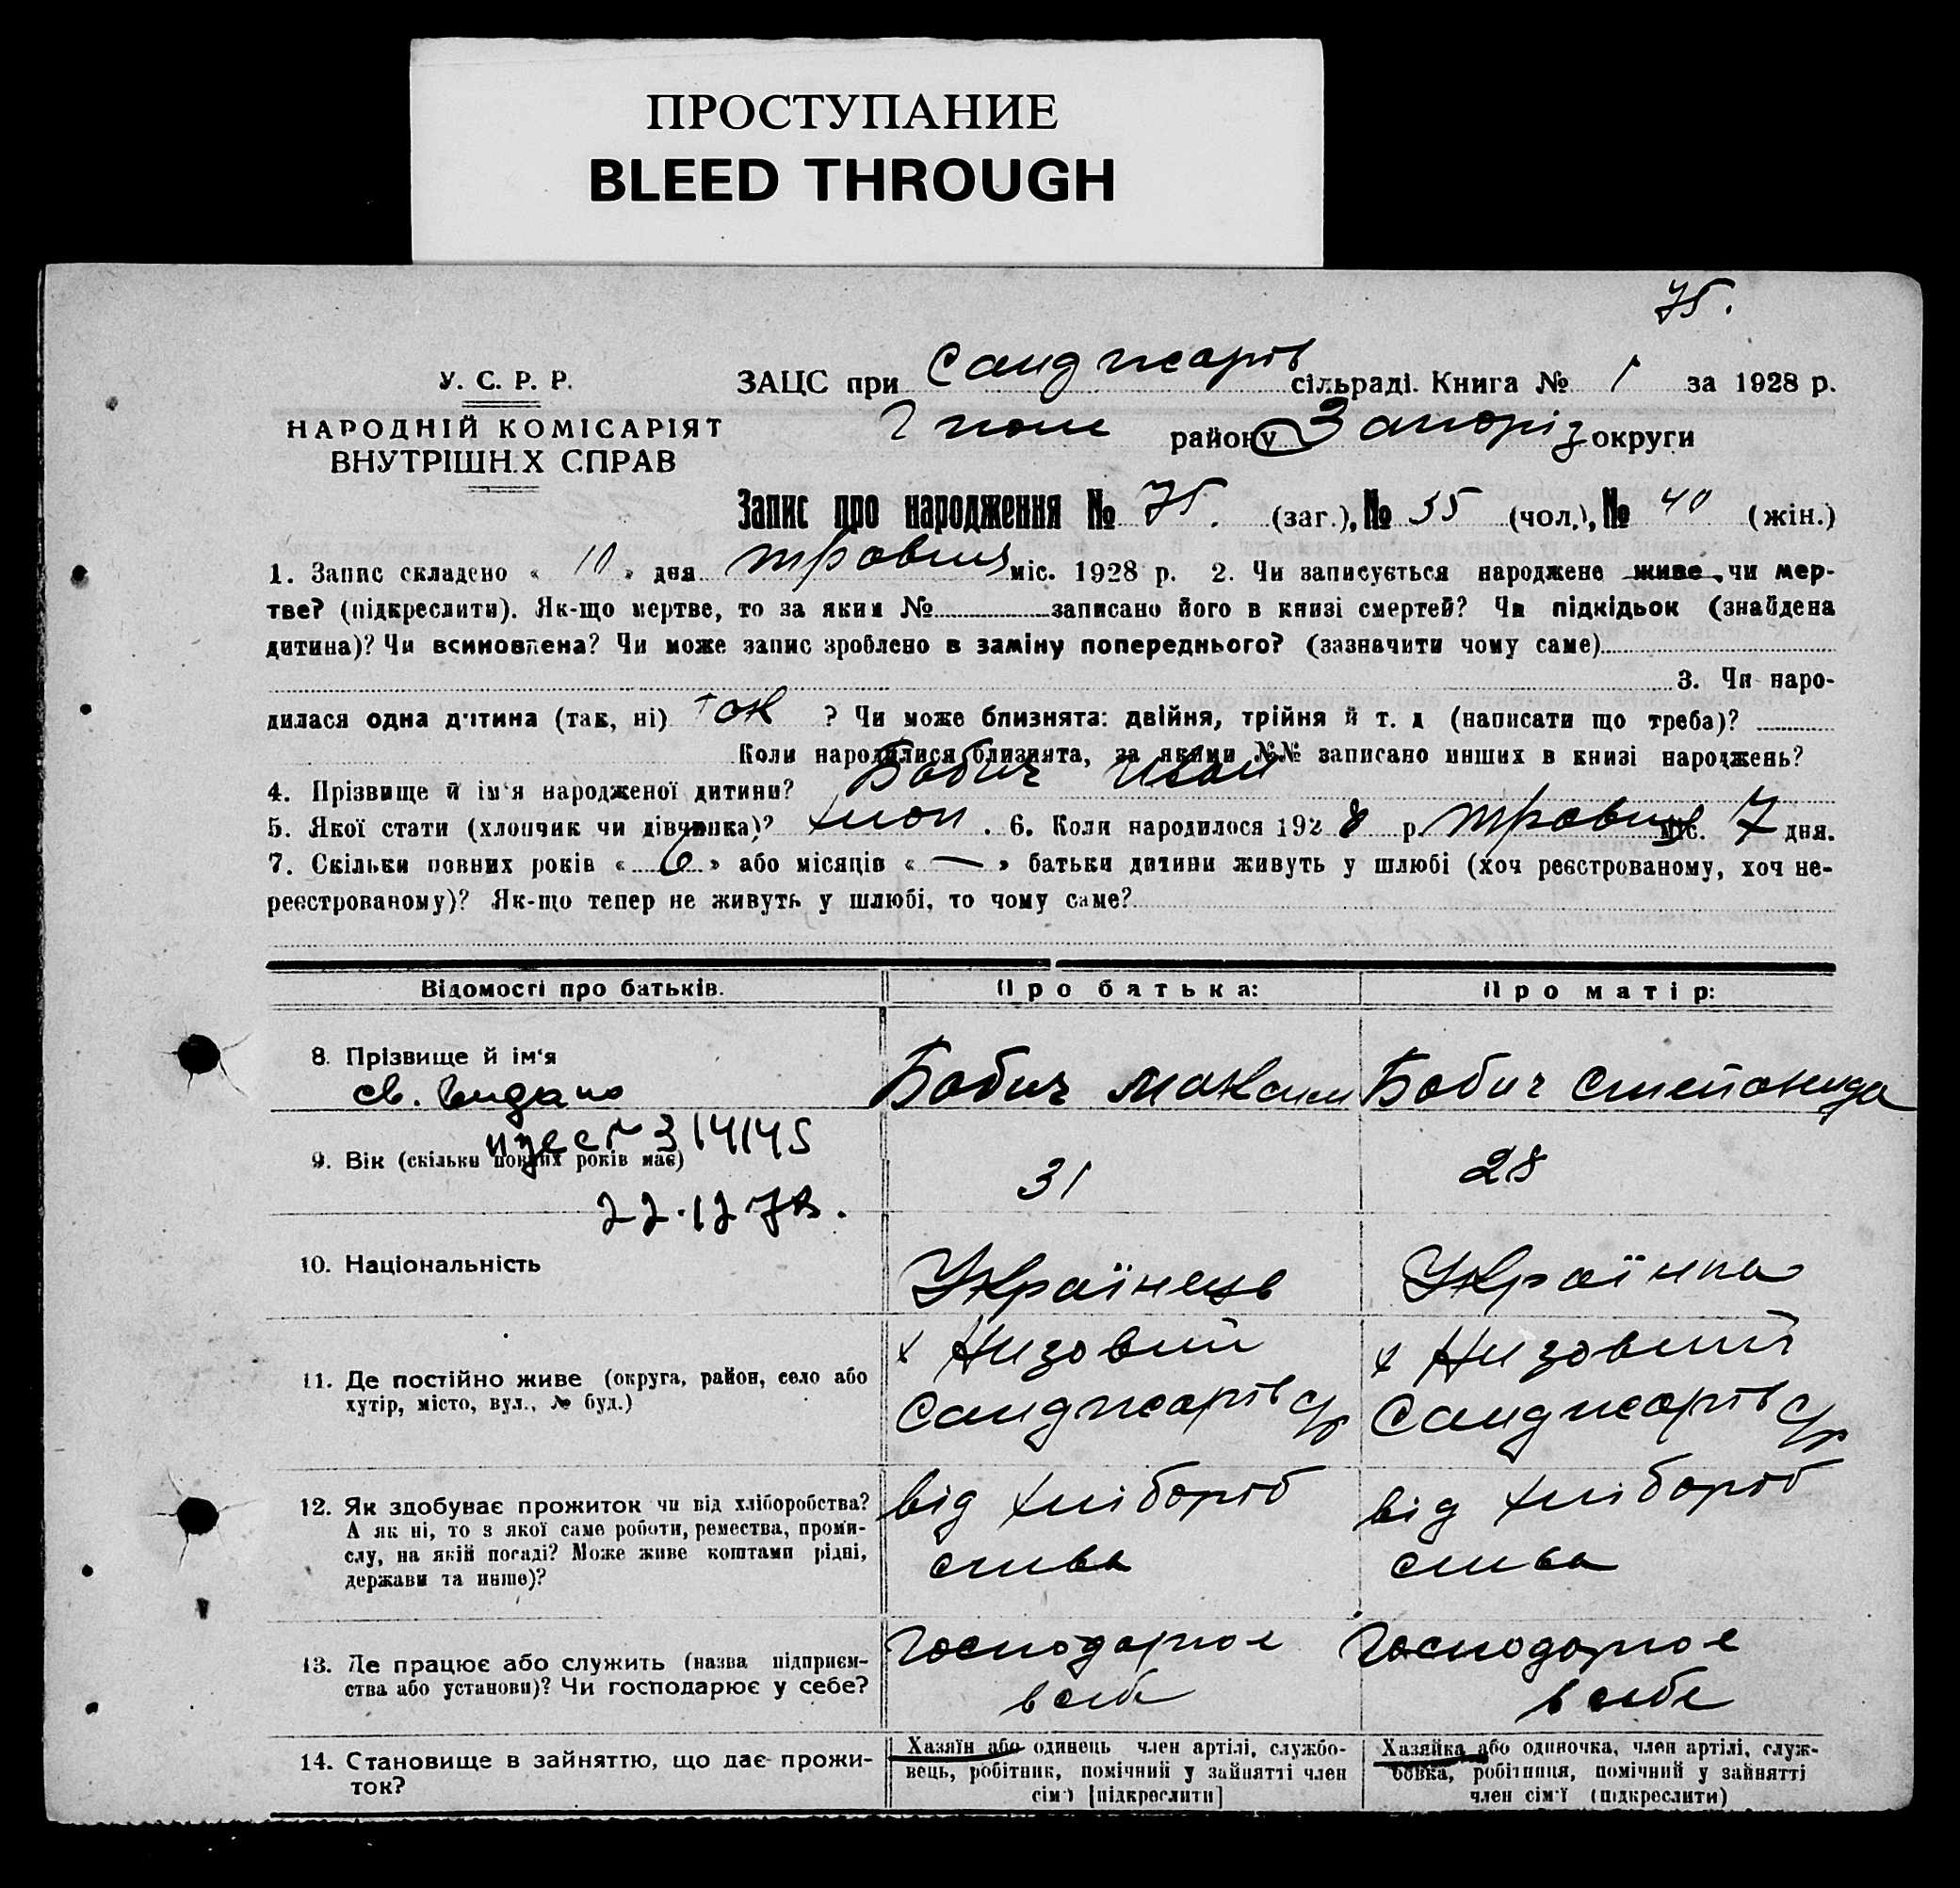 ПРОСТУПАНИЕ
BLEED THROUGH
75.
У. С. Р. Р.
НАРОДНІЙ КОМІСАРІЯТ
ВНУТРІШН.Х СПРАВ
ЗАЦС при Санджарів сільраді. Книга № 1 за 1928 р.
району Запоріз округи
Запис про народження № 75. (заг.), № 35 (чол.), № 40 (жін.)
1. Запис складено « 10 » дня травня міс. 1928 р. 2. Чи записується народжене живе, чи мер-
тве? (підкреслити). Як-що мертве, то за яким № записано його в книзі смертей? Чи підкідьок (знайдена
дитина)? Чи всиновлена? Чи може запис зроблено в заміну попереднього? (зазначити чому саме)
3. Чи наро-
дилася одна дитина (так, ні) так ? Чи може близнята: двійня, трійня й т. д (написати що треба)?
Коли народилися близнята, за якими №№ записано инших в книзі народжень?
4. Прізвище й ім'я народженої дитини? Бабич Іван
5. Якої стати (хлопчик чи дівчинка)? хлоп. 6. Коли народилося 1928 р. травня міс. 7 дня.
7. Скільки повних років « 6 » або місяців « — » батьки дитини живуть у шлюбі (хоч реєстрованому, хоч не-
реєстрованому)? Як-що тепер не живуть у шлюбі, то чому саме?
Відомості про батьків. Про батька: Про матір:
8. Прізвище й ім'я Бабич Максим Бабич Степанида
св. видано
314145
9. Вік (скільки повних років має) 31 28
22.12 78.
10. Національність Українець Українка
11. Де постійно живе (округа, район, село або
хутір, місто, вул., № буд.)
х Низовий
Санджарів с/р
х Низовий
Санджарів с/р
12. Як здобуває прожиток чи від хліборобства?
А як ні, то з якої саме роботи, ремества, проми-
слу, на якій посаді? Може живе коштами рідні,
держави та инше)?
від хлібороб
ства
від хлібороб
ства
13. Де працює або служить (назва підприєм-
ства або установи)? Чи господарює у себе?
Господарює
в себе
Господарює
в себе
14. Становище в зайняттю, що дає прожи-
ток?
Хазяїн або одинець член артілі, службо-
вець, робітник, помічний у зайнятті член
сім'ї [підкреслити]
Хазяйка або одиночка, член артілі, служ-
бовка, робітниця, помічний у зайнятті
член сім'ї (підкреслити)